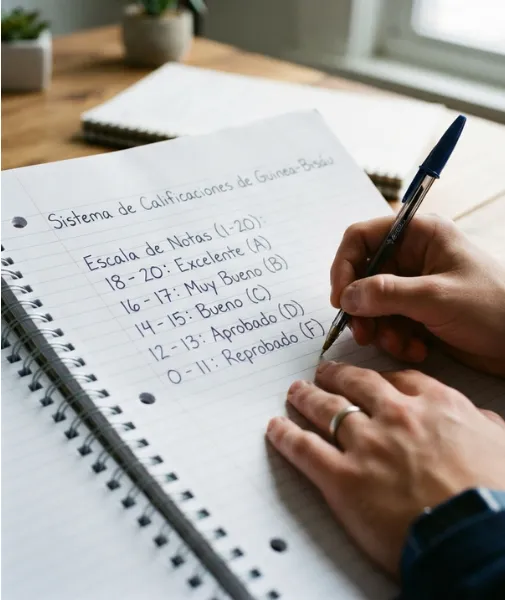 Sistema de Calificaciones de Guinea-Bisáu
Escala de Notas (1-20):
18-20: Excelente (A)
16-17: Muy Bueno (B)
14-15: Bueno (C)
12-13: Aprobado (D)
0-11: Reprobado (F)